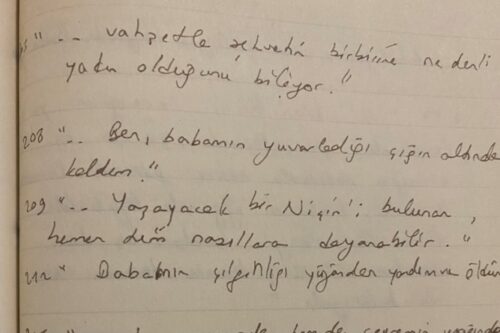 ".. vahşetle şehvetin birbirine ne denli
yakın olduğunu biliyor."
208 ".. Ben, babamın yuvarladığı çığın altında
kaldım."
209 ".. Yaşayacak bir Niçin'i bulunan,
hemen tüm nasıllara dayanabilir."
212 " Babamın çılgınlığı yüzünden yardımıma